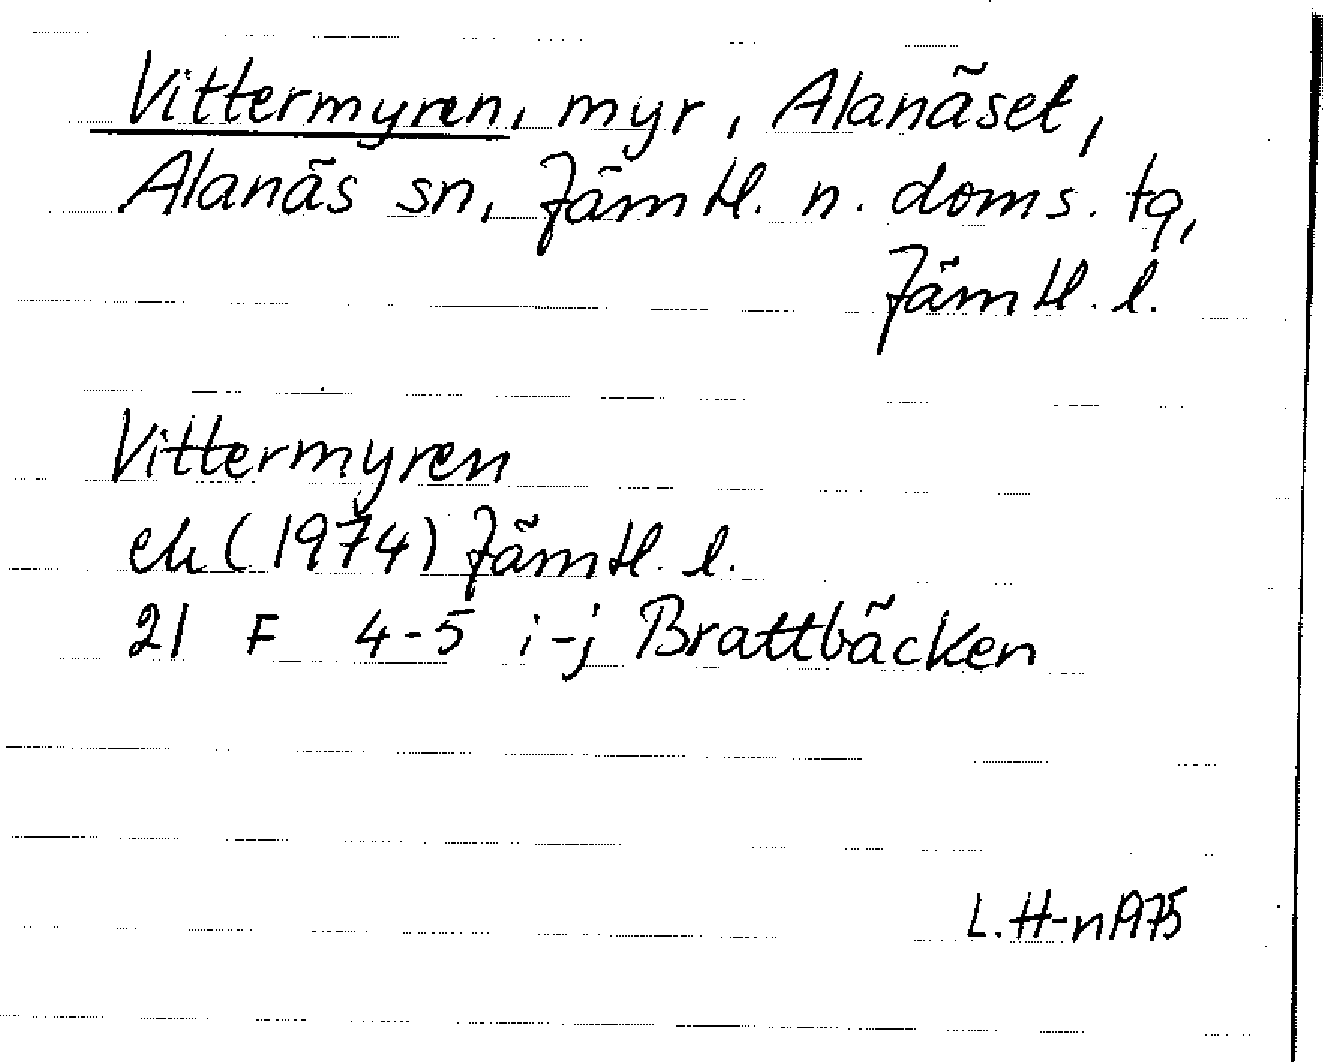 Vittermyren, myr, Alanäset,
Alanäs sn, Jämtl. n. doms. tg,
Jämtl. l.
Vittermyren
ek (1974) Jämtl. l.
21 F 4-5 i-j Brattbäcken
L. H-n 1975